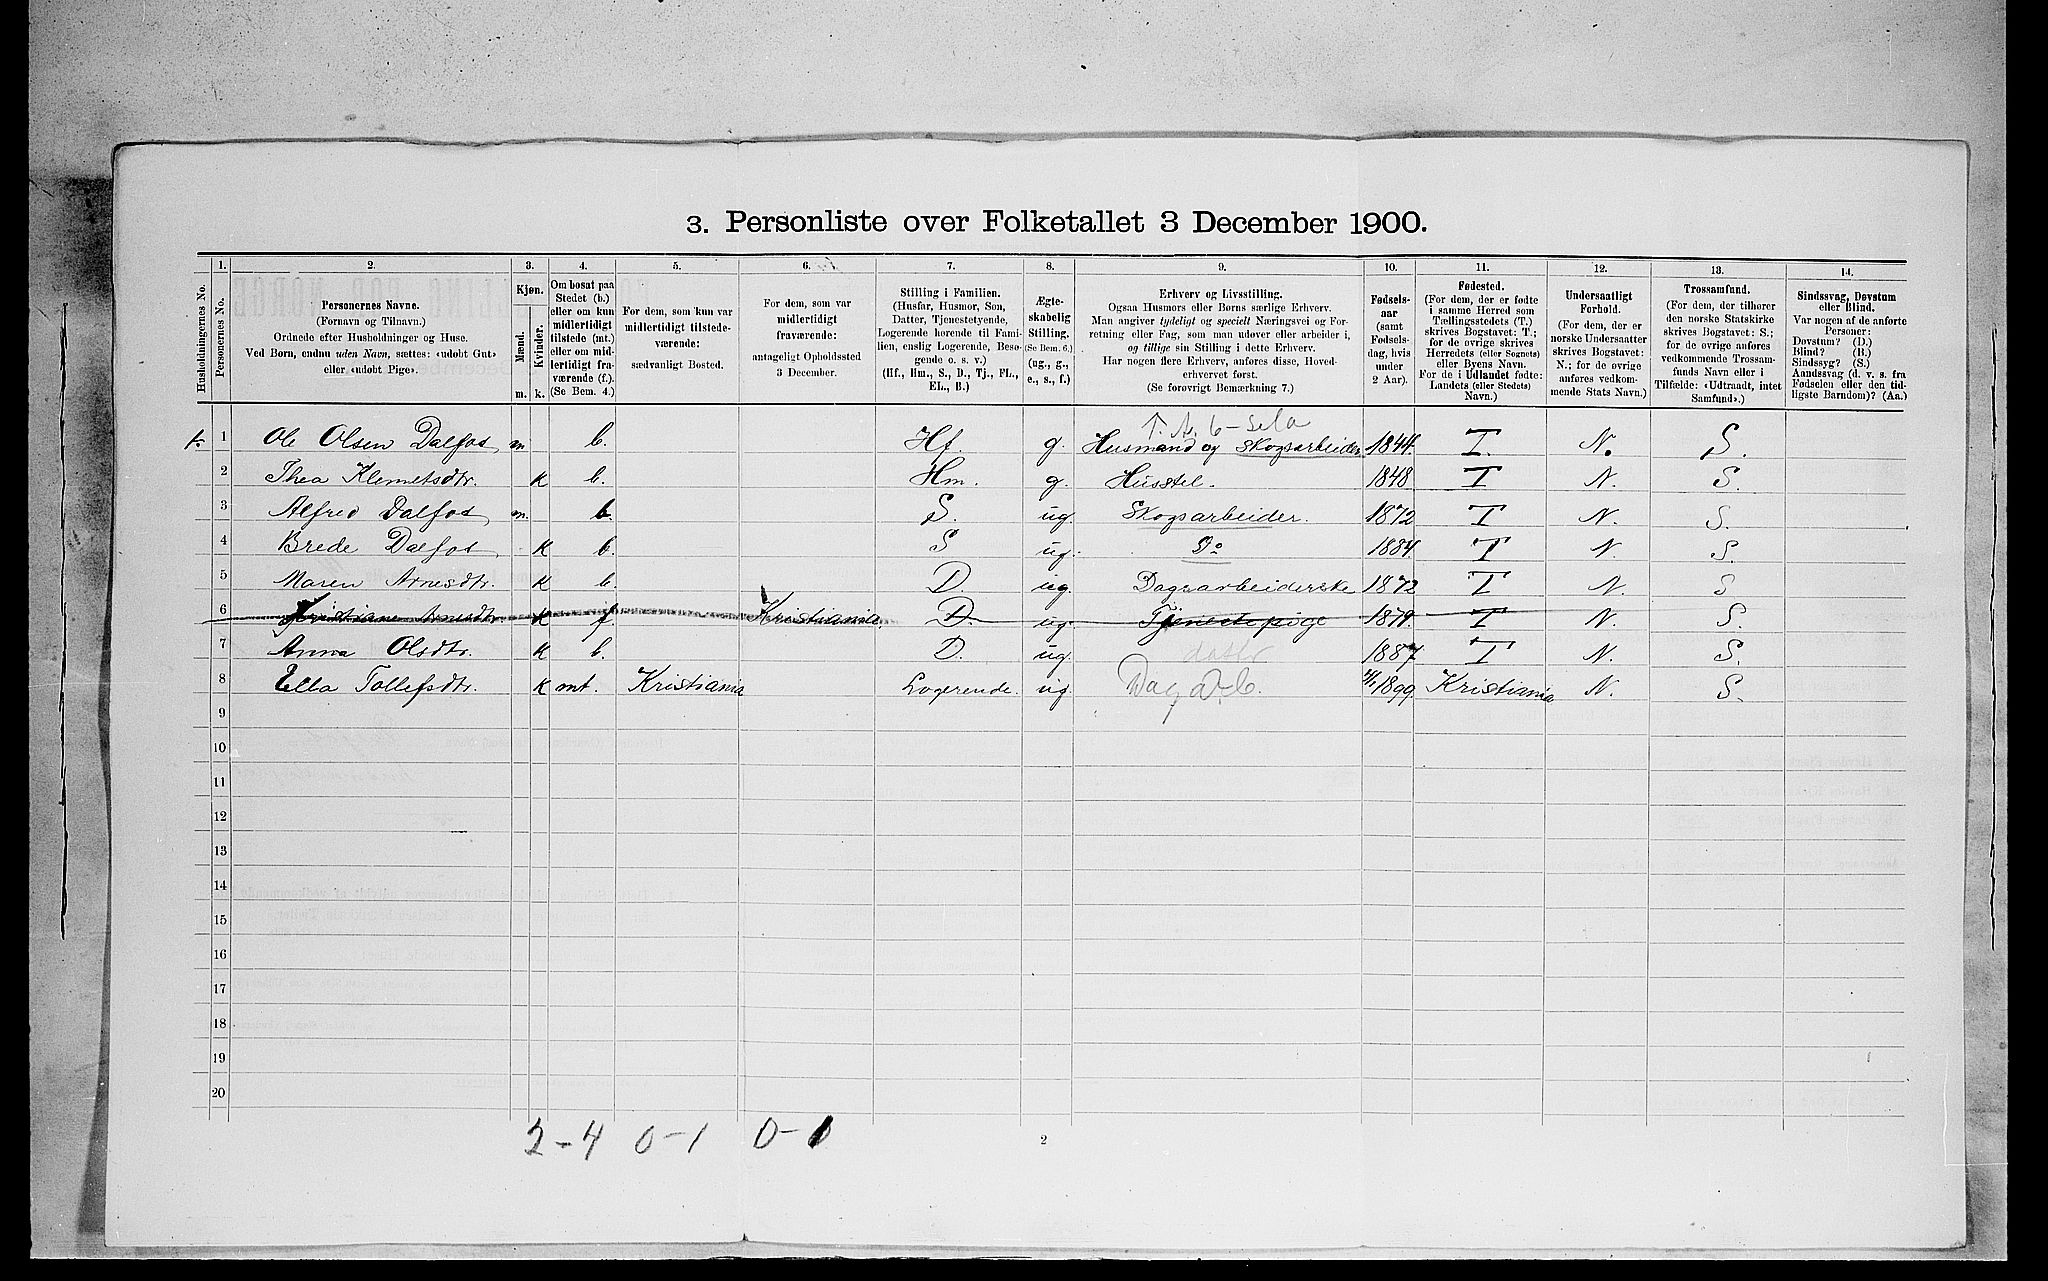 3. Personliste over Folketallet 3 December 1900.
1. 2. 3. 4. 5. 6. 7. 8. 9. 10. 11. 12. 13. 14.
Husholdningernes No.
Personernes No.
Personernes Navne.
(Fornavn og Tilnavn.)
Ordnede efter Husholdninger og Huse.
Ved Børn, endnu uden Navn, sættes: «udobt Gut»
eller «udobt Pige».
Kjøn.
Mænd.
Kvinder.
m. k.
Om bosat paa
Stedet (b.)
eller om kun
midlertidigt
tilstede (mt.)
eller om mid-
lertidigt fra-
værende (f.).
(Se Bem. 4.)
For dem, som kun var
midlertidigt tilstede-
værende:
sædvanligt Bosted.
For dem, som var
midlertidigt
fraværende:
antageligt Opholdssted
3 December.
Stilling i Familien.
(Husfar, Husmor, Søn,
Datter, Tjenestetyende,
Logerende hørende til Fami-
lien, enslig Logerende, Besø-
gende o. s. v.)
(Hf., Hm., S., D., Tj., FL.,
EL., B.)
Ægte-
skabelig
Stilling.
(Se Bem. 6.)
(ug., g.,
e., s., f.)
Erhverv og Livsstilling.
Ogsaa Husmors eller Børns særlige Erhverv.
Man angiver tydeligt og specielt Næringsvei og For-
retning eller Fag, som man udøver eller arbeider i,
og tillige sin Stilling i dette Erhverv.
Har nogen flere Erhverv, anføres disse, Hoved-
erhvervet først.
(Se forøvrigt Bemærkning 7.)
Fødsels-
aar
(samt
Fødsels-
dag, hvis
under
2 Aar).
Fødested.
(For dem, der er fødte
i samme Herred som
Tællingsstedets (T.)
skrives Bogstavet: T.;
for de øvrige skrives
Herredets (eller Sognets)
eller Byens Navn.
For de i Udlandet fødte:
Landets (eller Stedets)
Navn.)
Undersaatligt
Forhold.
(For dem, der er
norske Undersaatter
skrives Bogstavet:
N.; for de øvrige
anføres vedkom-
mende Stats Navn.)
Trossamfund.
(For dem, der tilhører
den norske Statskirke
skrives Bogstavet: S.;
for de øvrige anføres
vedkommende Trossam-
funds Navn eller i
Tilfælde: «Udtraadt, intet
Samfund».)
Sindssvag, Døvstum
eller Blind.
Var nogen af de anførte
Personer:
Døvstum? (D.)
Blind? (B.)
Sindssyg? (S.)
Aandssvag (d. v. s. fra
Fødselen eller den tid-
ligste Barndom)? (Aa.)
1 Ole Olsen Dalfos m b. Hf. g. Husmand og Skogsarbeider 1844. T. N. S.
2 Thea Klemetsdtr. K b. Hm. g. Husstel. 1848 T N. S.
3 Alfred Dalfos m. b. S. ug. Skogsarbeider. 1872 T N. S.
4 Brede Dalfos K b. S ug. Do 1884. T N. S.
5 Maren Arnesdtr. K b. D. ug. Dagsarbeiderske 1872 T N. S
6 Kristiane Arnesdtr. K f Kristiania. D. ug. Tjenestepige 1879. T N. S.
7 Anna Olsdtr. K b. D. ug. datter 1887 T N. S.
8 Ella Tollefsdtr. K mt. Kristiania Logerende. ug. 1899. Kristiania N. S.
9
10
11
12
13
14
15
16
17
18
19
20
2-4 0-1 0-1
2